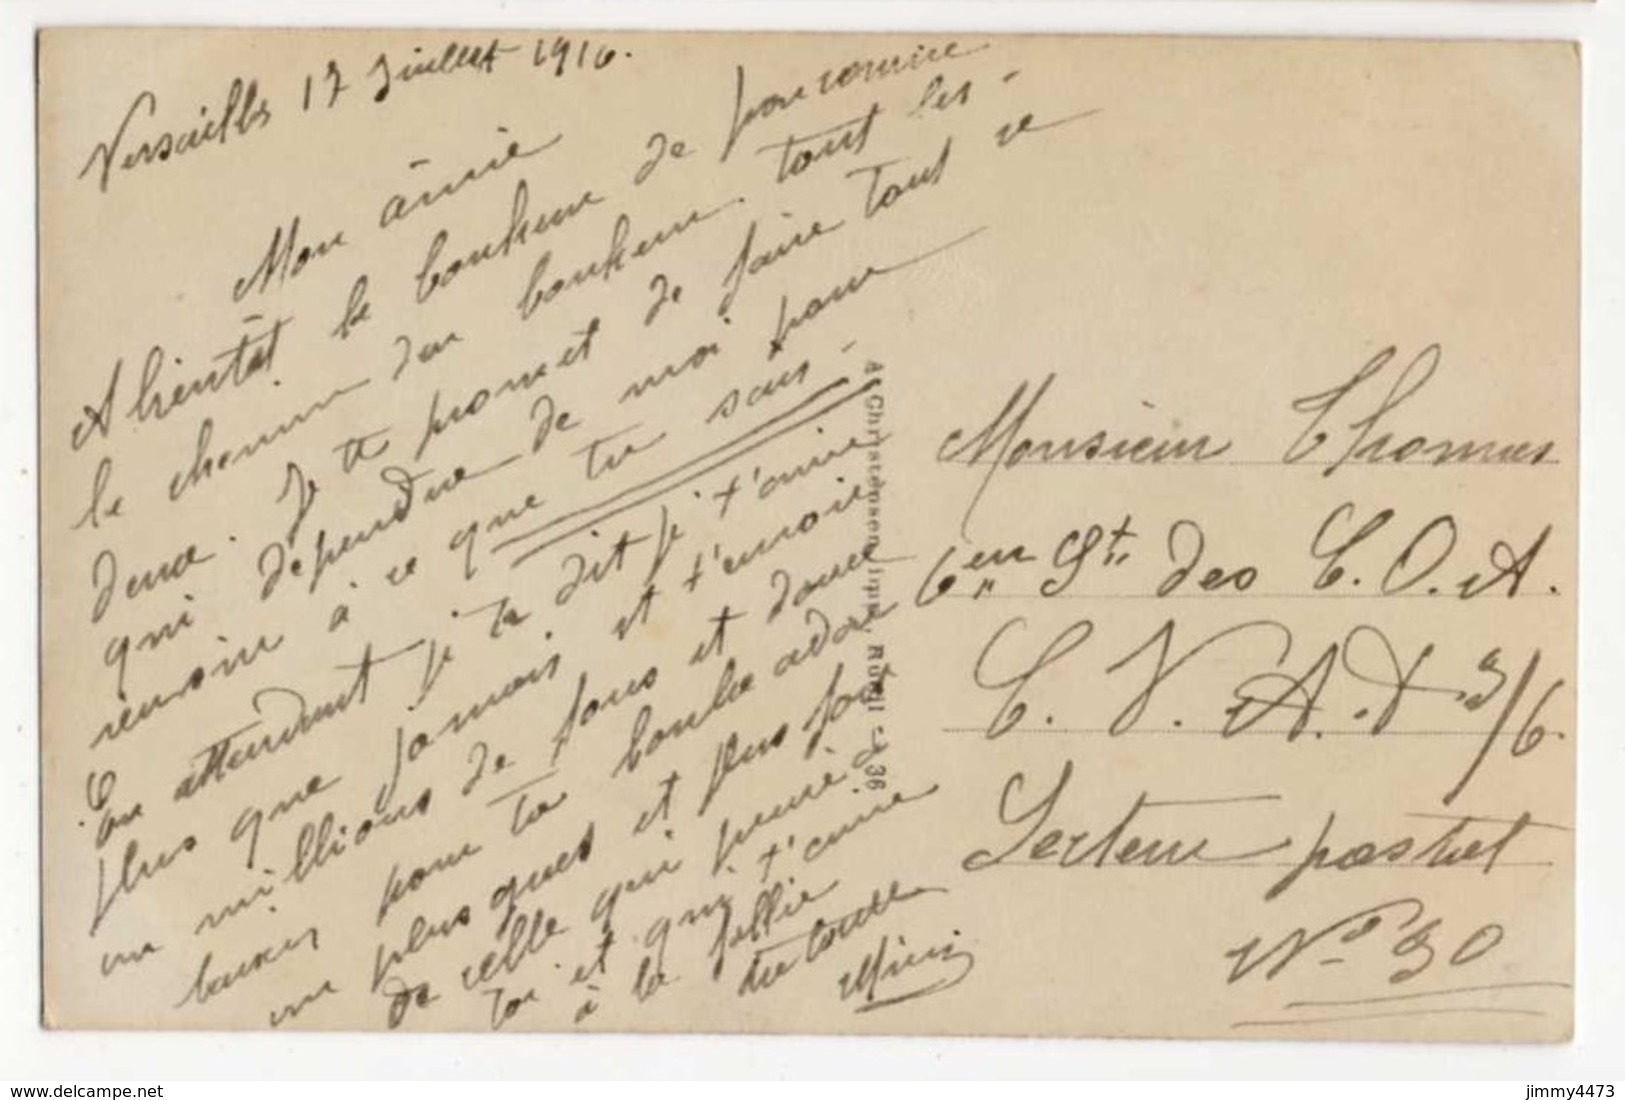 Versailles 17 Juillet 1916.
Mon âmie
A bientôt le bonheur de pouvoir
le chemin du bonheur tout les
deux. Je te promet de faire tout ce
qui dépendre de moi pour
revoir à ce que tu sais
En attendant je te dit je t'aime
plus que jamais et t'envoie
un millions de fous et doux
baisers pour ta bouche adoré
un plus gros et plus fort
de celle qui
toi et qui t'aime
à la follie
ta toute
Mimi
A. Christensen, imp., Rueil - 36
Monsieur Thomas
6en Sts des C. O. A.
C. V. A. D. 3/6.
Secteur postal
No 90
www.delcampe.net
jimmy4473